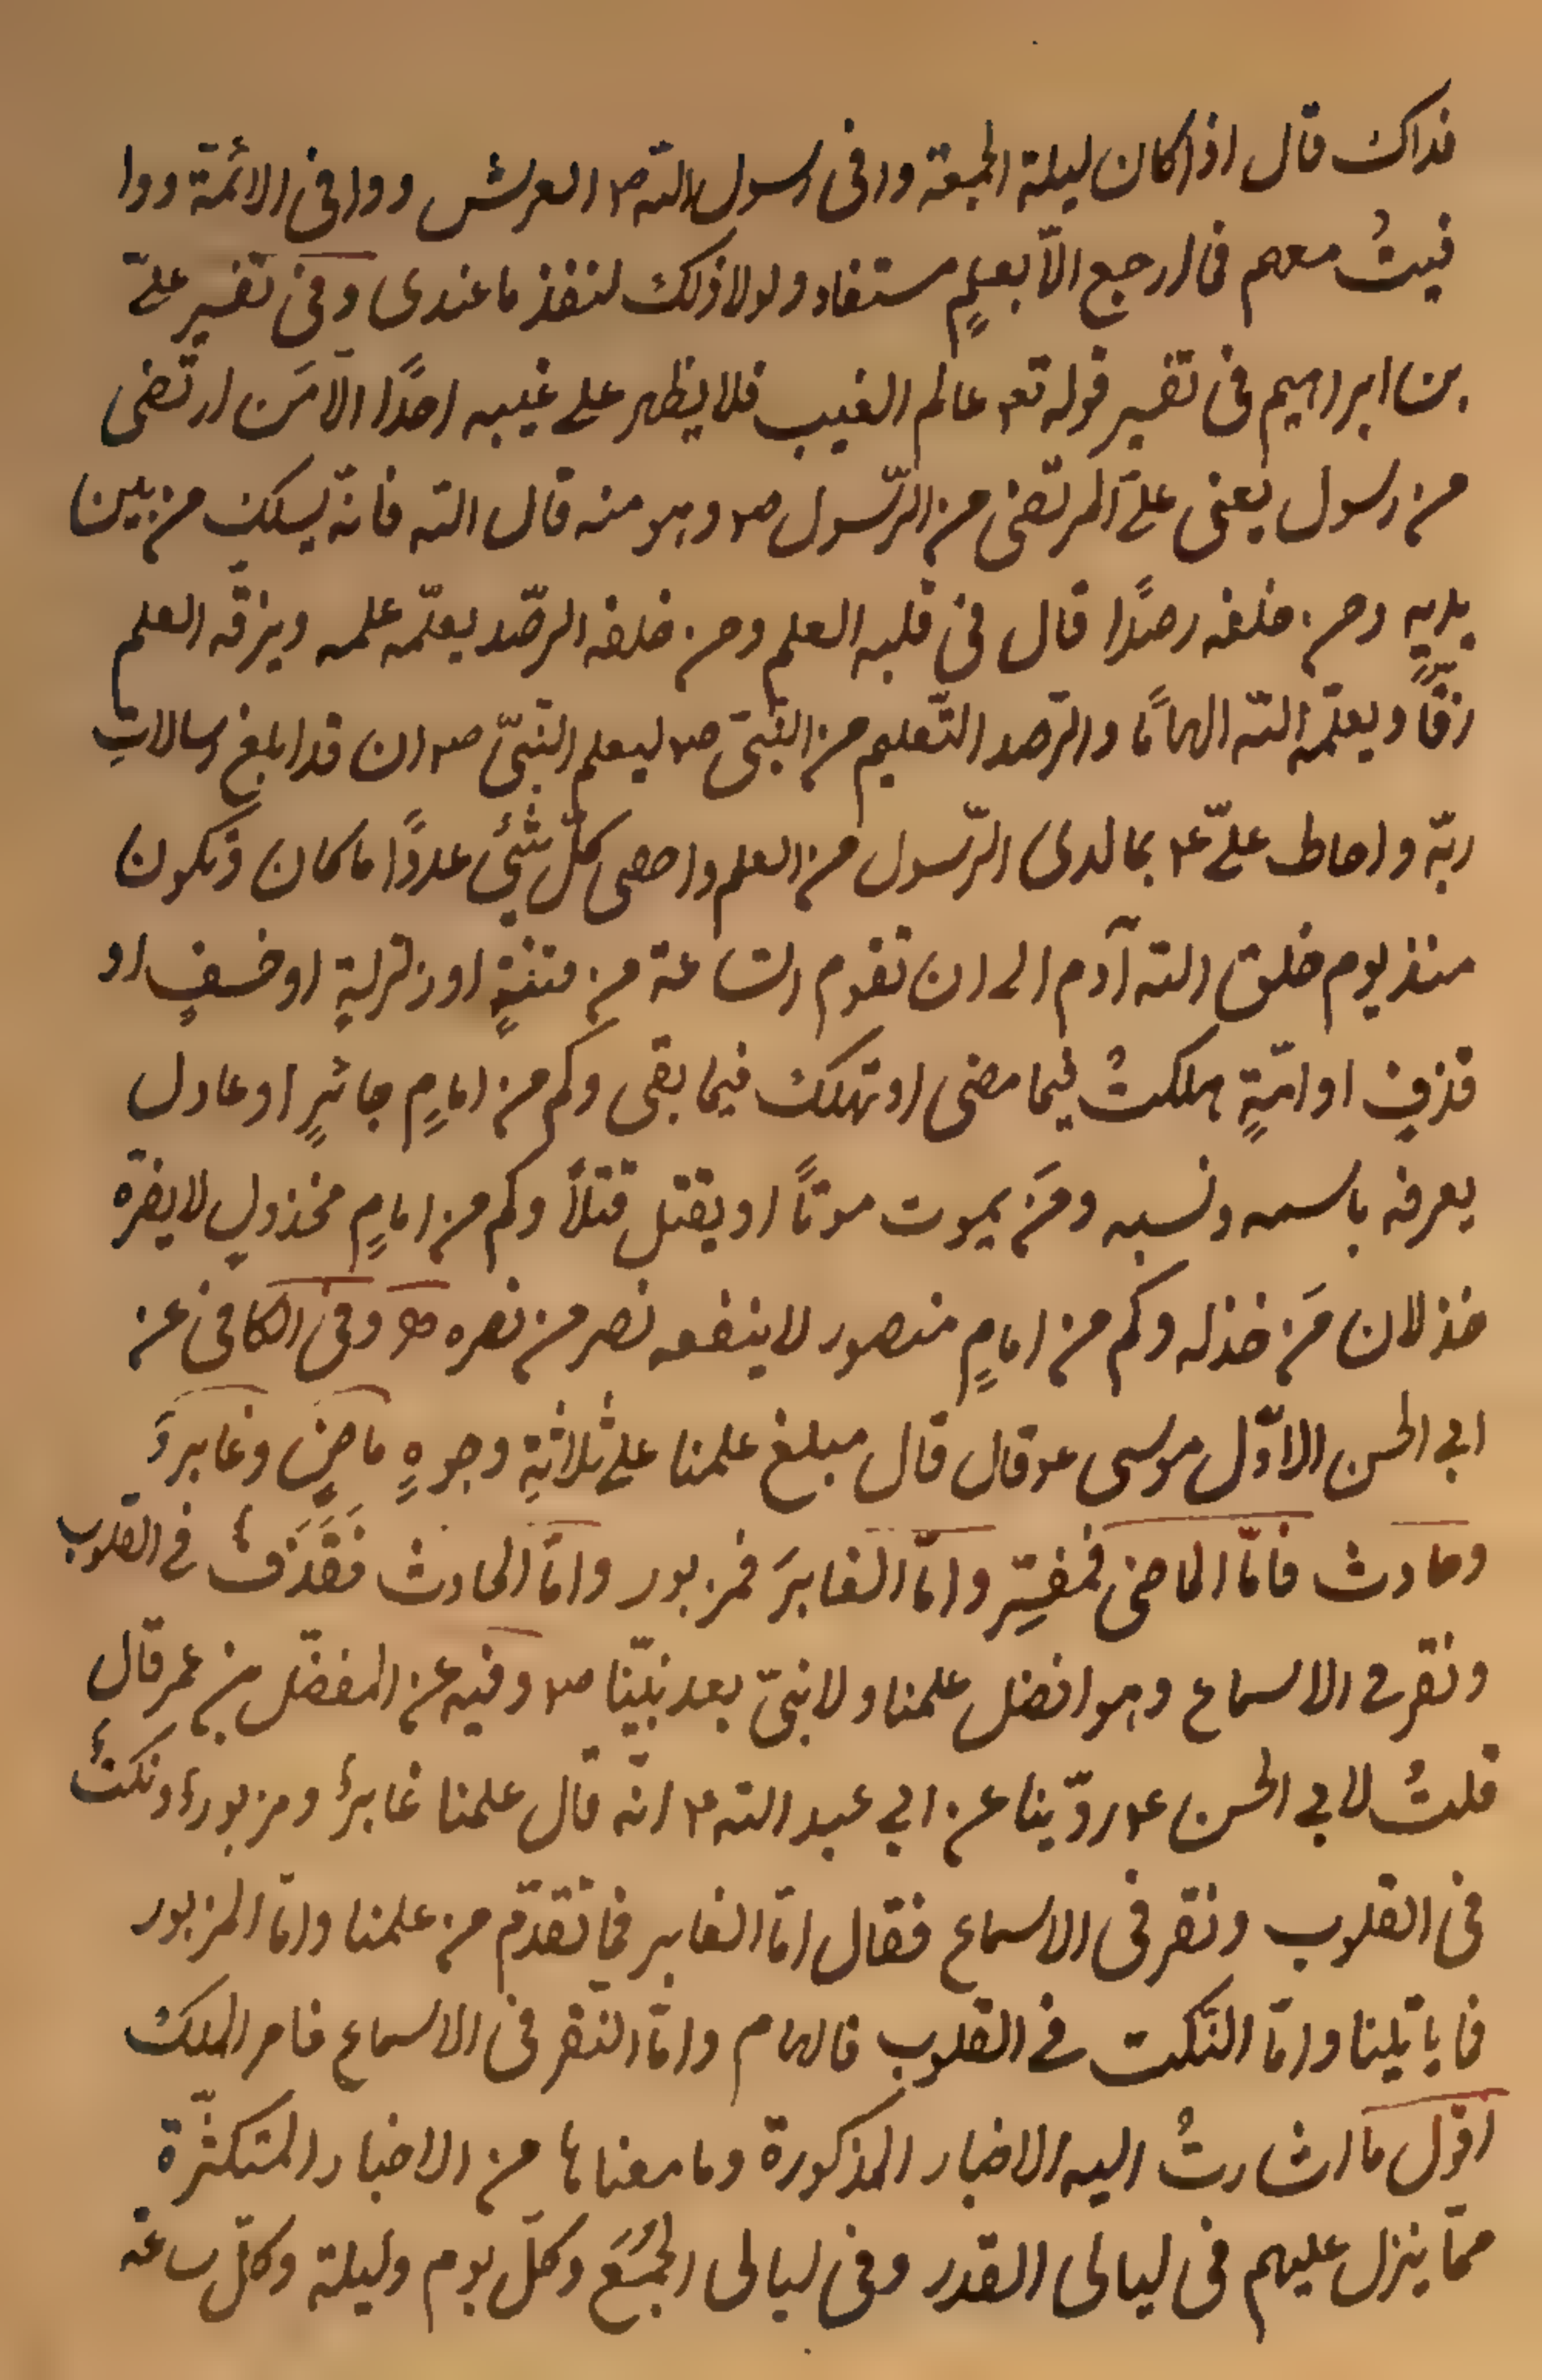 فداك قال اذا كان ليلة الجمعة وافى رسول الله ص العرش ووافى الائمة ووا
فيتُ معهم فما ارجع الّا بعلمٍ مستفاد ولولا ذلك لنفذ ما عندى وفى تفسير علىّ
بن ابراهيم فى تفسير قوله تع عالم الغيب فلا يظهر على غيبه احدًا الّا مَن ارتضى
من رسول يعنى علىّ المرتضى من الرّسول ص وهو منه قال الله فانّه يسلك من بين
يديه ومن خلفه رصدًا قال فى قلبه العلم ومن خلفه الرصّد يعلّمه علمه ويزقّه العلم
زقًّا ويعلّمه الله الهامًا والرّصد التّعليم من النّبىّ ص ليعلم النّبىّ ص ان قد ابلغ رسالاتِ
ربّه واحاط علىّ ع بما لدى الرّسول من العلم واحصى كلّ شئٍ عددًا ما كان ويكون
منذ يوم خلق الله آدم الى ان تقوم السّاعة من فتنةٍ او زلزلةٍ او خسفٍ او
قذفٍ او امّةٍ هلكتْ فيما مضى او تهلك فيما بقى وكم من امامٍ جائرٍ او عادل
يعرفه باسمه ونسبه ومَن يموت موتًا او يقتل قتلًا وكم من امامٍ مخذولٍ لا يضرّه
خذلان مَن خذله وكم من امامٍ منصور لا ينفعه نصر من نصره وفى الكافى عن
ابى الحسن الاوّل موسى ع قال قال مبلغ علمنا على ثلاثةِ وجوهٍ ماضٍ وغابرٌ
وحادث فامّا الماضى فمفسّر وامّا الغابرَ فمزبور وامّا الحادث فَقَذَفٌ فى القلوب
ونقر فى الاسماع وهو افضل علمنا ولا نبىّ بعد نبيّنا ص وفيه عن المفضّل بن عمر قال
قلتُ لابى الحسن ع روّينا عن ابى عبد الله ع انّه قال علمنا غابرٌ ومزبورٌ ونكتٌ
فى القلوب ونقر فى الاسماع فقال امّا الغابر فما تقدّم من علمنا وامّا المزبور
فما ياتينا وامّا النّكت فى القلوب فالهام وامّا النّقر فى الاسماع فامر الملك
اقول ما اشارتْ اليه الاخبار المذكورة وما معناها من الاخبار المتكثّرة
ممّا ينزل عليهم فى ليالى القدر وفى ليالى الجُمَع وكلّ يوم وليلة وكلّ ساعة